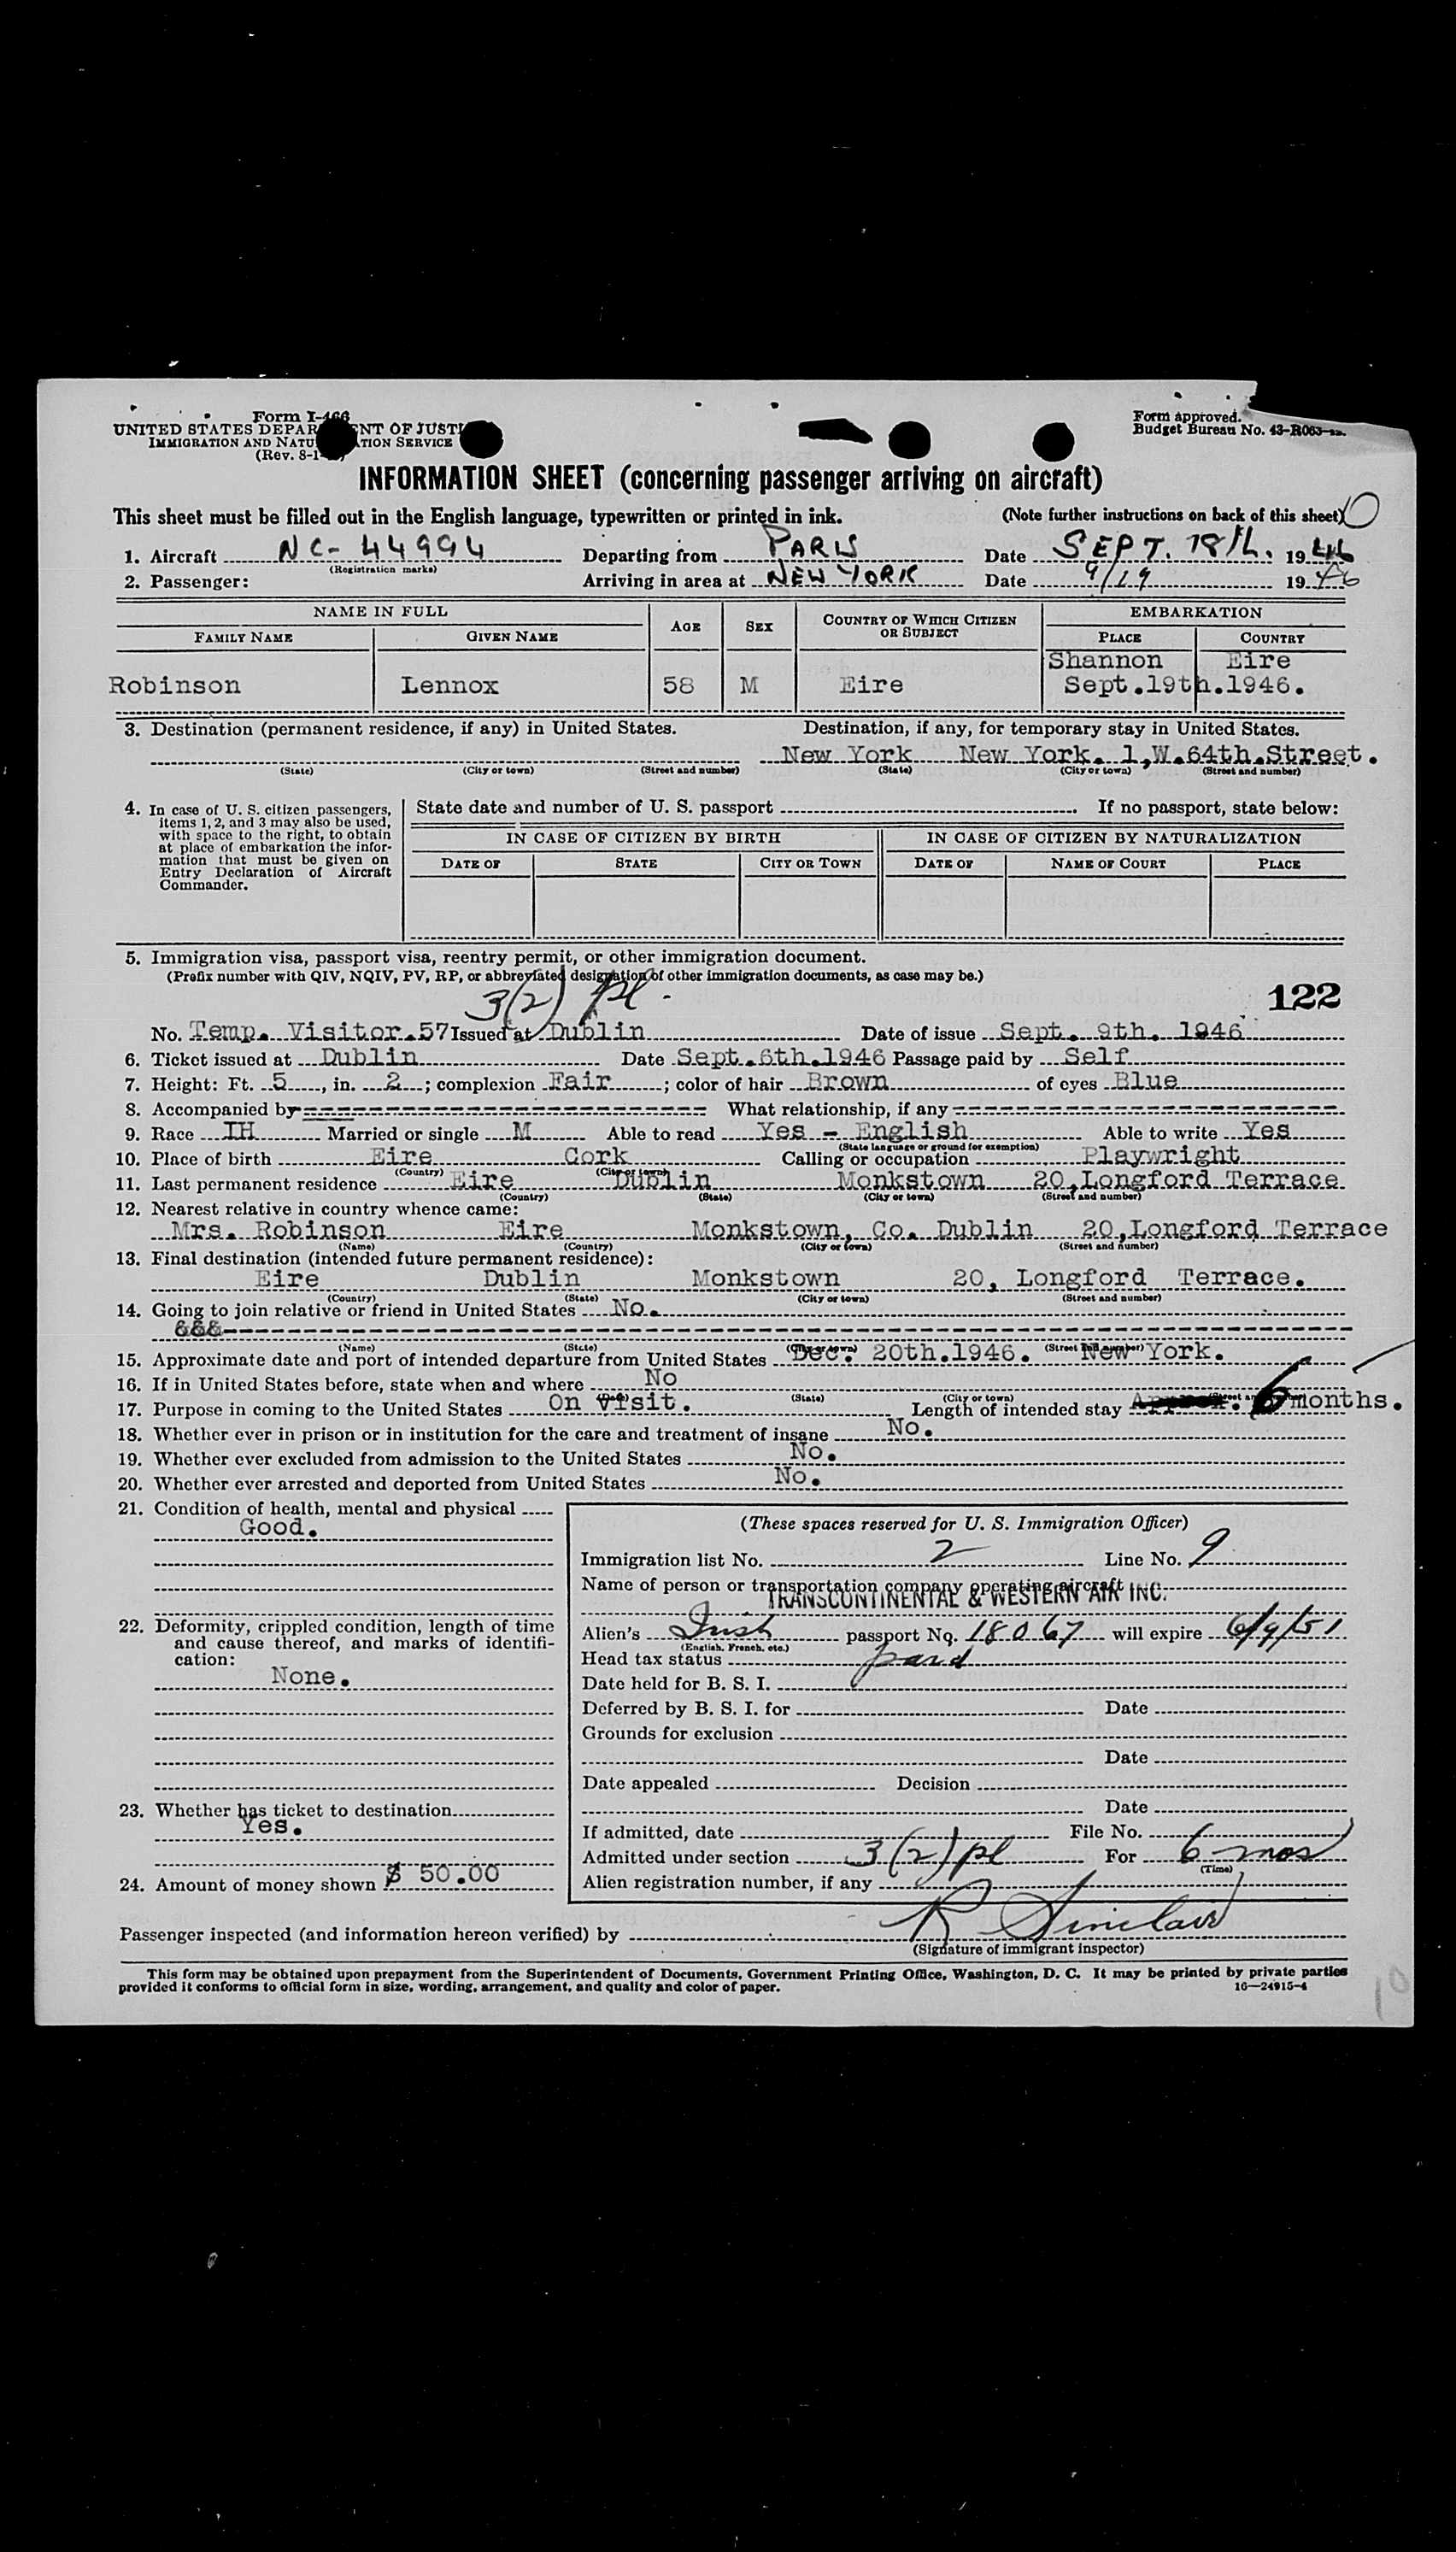 Form I-466
UNITED STATES DEPAR NT OF JUST
IMMIGRATION AND NATU TION SERVICE
(Rev. 8-1-
Form approved.
Budget Bureau No. 43-R063-
INFORMATION SHEET (concerning passenger arriving on aircraft)
This sheet must be filled out in the English language, typewritten or printed in ink. (Note further instructions on back of this sheet) 10
1. Aircraft NC-44994 Departing from PARIS Date SEPT. 18th. 1946
(Registration marks)
2. Passenger: Arriving in area at NEW YORK Date 9/19 1946
NAME IN FULL AGE SEX COUNTRY OF WHICH CITIZEN OR SUBJECT EMBARKATION
FAMILY NAME GIVEN NAME PLACE COUNTRY
Shannon Eire
Robinson Lennox 58 M Eire Sept.19th.1946.
3. Destination (permanent residence, if any) in United States. Destination, if any, for temporary stay in United States.
New York New York. 1,W.64th.Street.
(State) (City or town) (Street and number) (State) (City or town) (Street and number)
4. In case of U. S. citizen passengers, items 1, 2, and 3 may also be used, with space to the right, to obtain at place of embarkation the information that must be given on Entry Declaration of Aircraft Commander.
State date and number of U. S. passport If no passport, state below:
IN CASE OF CITIZEN BY BIRTH IN CASE OF CITIZEN BY NATURALIZATION
DATE OF STATE CITY OR TOWN DATE OF NAME OF COURT PLACE
5. Immigration visa, passport visa, reentry permit, or other immigration document.
(Prefix number with QIV, NQIV, PV, RP, or abbreviated designation of other immigration documents, as case may be.)
3(2) pl. 122
No. Temp. Visitor.57 Issued at Dublin Date of issue Sept. 9th. 1946
6. Ticket issued at Dublin Date Sept.6th.1946 Passage paid by Self
7. Height: Ft. 5, in. 2; complexion Fair; color of hair Brown of eyes Blue
8. Accompanied by What relationship, if any
9. Race IH Married or single M Able to read Yes - English Able to write Yes
(State language or ground for exemption)
10. Place of birth Eire Cork Calling or occupation Playwright
(Country) (City or town)
11. Last permanent residence Eire Dublin Monkstown 20,Longford Terrace
(Country) (State) (City or town) (Street and number)
12. Nearest relative in country whence came:
Mrs. Robinson Eire Monkstown, Co. Dublin 20,Longford Terrace
(Name) (Country) (City or town) (Street and number)
13. Final destination (intended future permanent residence):
Eire Dublin Monkstown 20, Longford Terrace.
(Country) (State) (City or town) (Street and number)
14. Going to join relative or friend in United States No.
&&&
(Name) (State) (City or town) (Street and number)
15. Approximate date and port of intended departure from United States Dec. 20th.1946. New York.
16. If in United States before, state when and where No
(Date) (State) (City or town) (Street and number)
17. Purpose in coming to the United States On visit. Length of intended stay 6 months.
18. Whether ever in prison or in institution for the care and treatment of insane No.
19. Whether ever excluded from admission to the United States No.
20. Whether ever arrested and deported from United States No.
21. Condition of health, mental and physical
Good.
22. Deformity, crippled condition, length of time and cause thereof, and marks of identification:
None.
23. Whether has ticket to destination
Yes.
24. Amount of money shown $ 50.00
(These spaces reserved for U. S. Immigration Officer)
Immigration list No. 2 Line No. 9
Name of person or transportation company operating aircraft
TRANSCONTINENTAL & WESTERN AIR INC.
Alien's Irish passport No. 18067 will expire 6/9/51
(English, French, etc.)
Head tax status paid
Date held for B. S. I.
Deferred by B. S. I. for Date
Grounds for exclusion
Date
Date appealed Decision
Date
If admitted, date File No.
Admitted under section 3(2) pl For 6 mos
(Time)
Alien registration number, if any
Passenger inspected (and information hereon verified) by R Sinclair
(Signature of immigrant inspector)
This form may be obtained upon prepayment from the Superintendent of Documents, Government Printing Office, Washington, D. C. It may be printed by private parties
provided it conforms to official form in size, wording, arrangement, and quality and color of paper. 16—24915-4
10